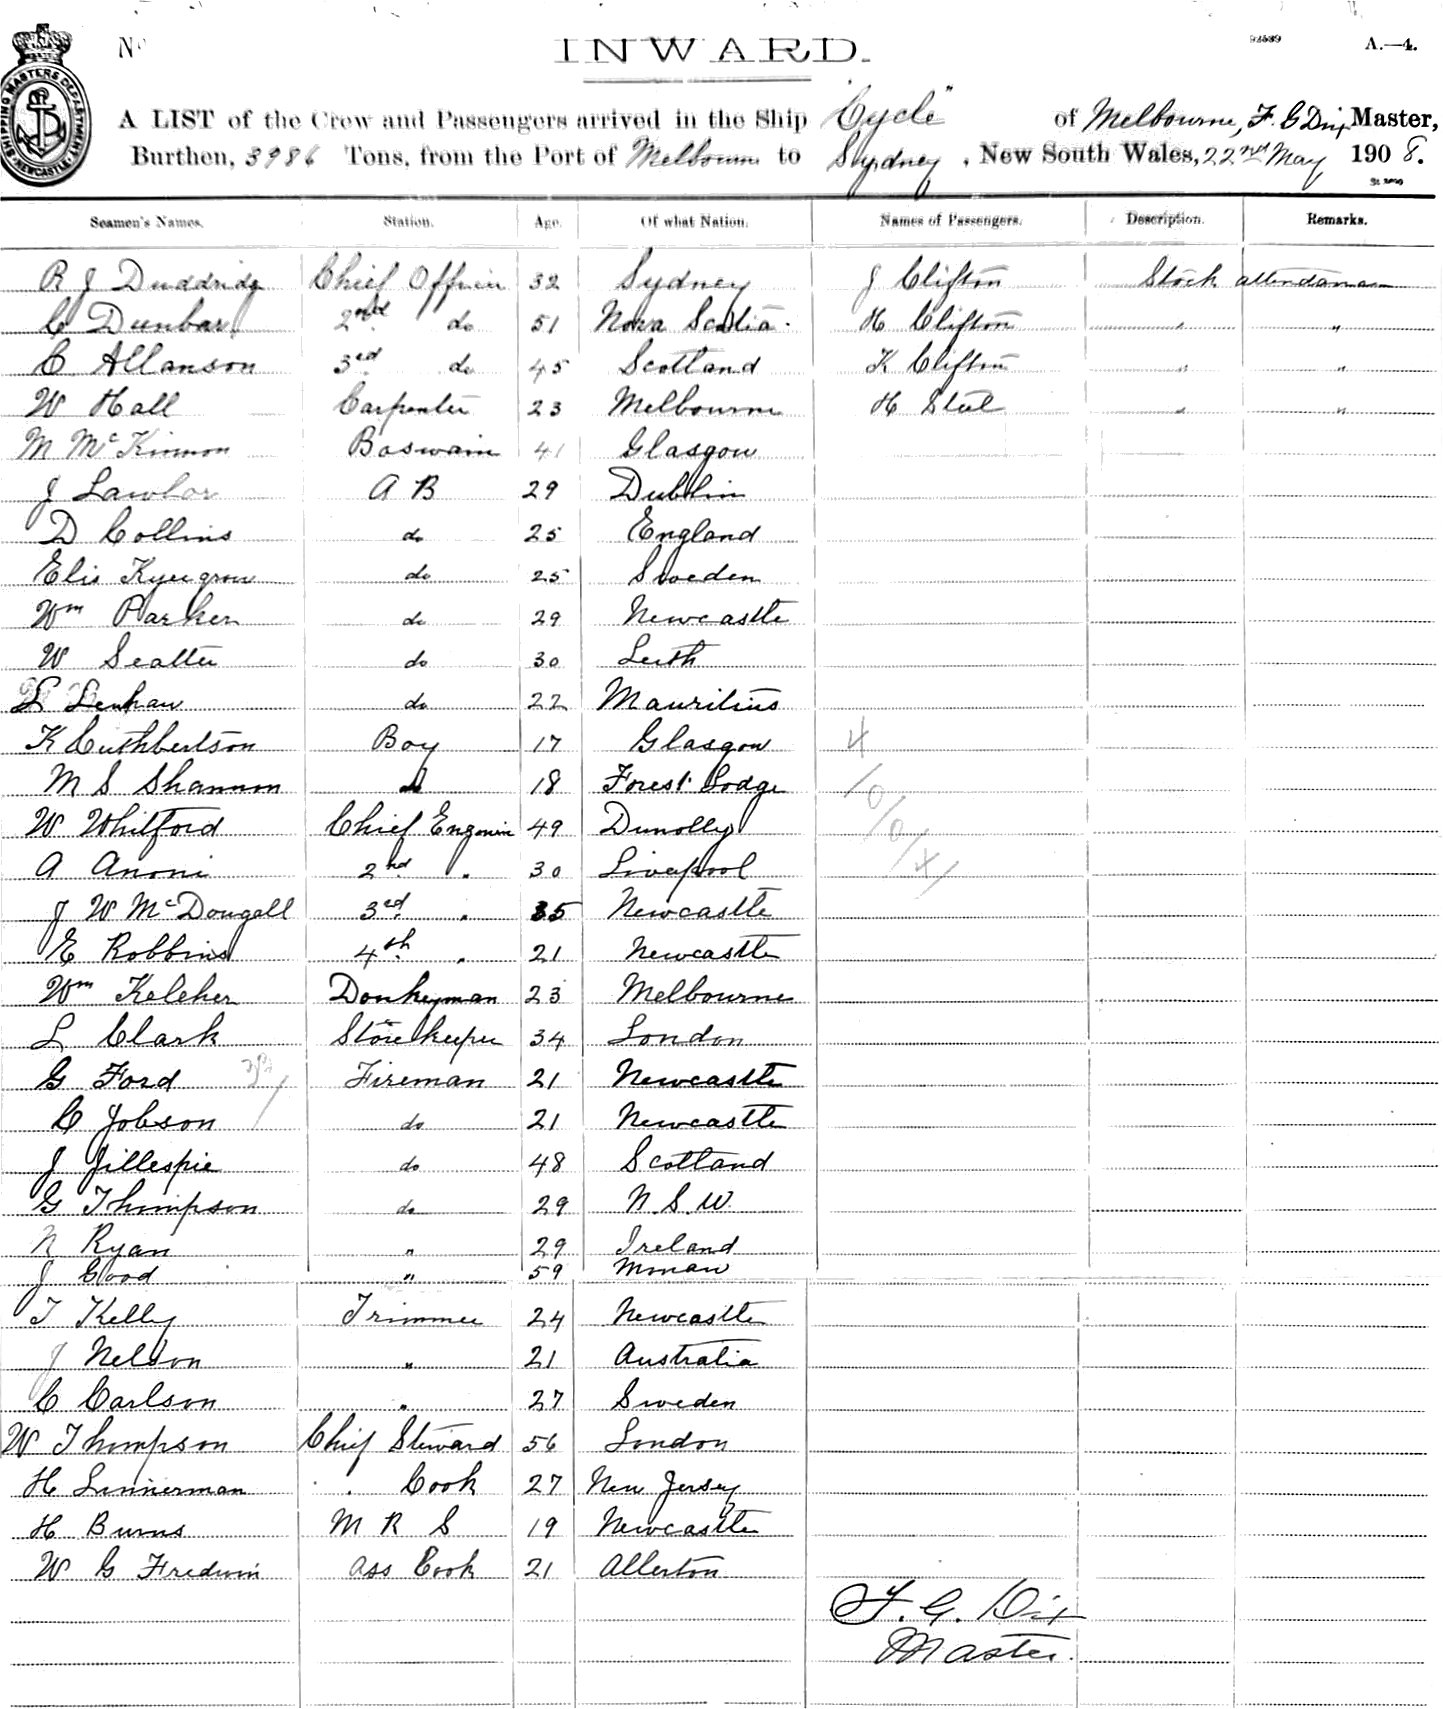 No
INWARD.
92589
A.—4.
SHIPPING MASTERS DEPARTMENT NEWCASTLE
A LIST of the Crew and Passengers arrived in the Ship "Cycle" of Melbourne, F. G Dix Master,
Burthen, 3986 Tons, from the Port of Melbourne to Sydney, New South Wales, 22nd May 1908.
Seamen's Names. Station. Age. Of what Nation. Names of Passengers. Description. Remarks.
R J Duddridge Chief Officer 32 Sydney J Clifton Stock attendance
C Dunbar 2nd do 51 Nova Scotia. H Clifton " "
C Allanson 3rd do 45 Scotland K Clifton " "
W Hall Carpenter 23 Melbourne H Steel " "
M McKinnon Boswain 41 Glasgow
J Lawlor A B 29 Dublin
D Collins do 25 England
Elis do 25 Sweden
Wm Parker do 29 Newcastle
W Seatter do 30 Leith
L Lenhaw do 22 Mauritius
K Cuthbertson Boy 17 Glasgow 4
M S Shannon do 18 Forest Lodge /0/
W Whitford Chief Enginir 49 Dunolly 0/
A Anoni 2nd " 30 Liverpool 4/
J W McDougall 3rd " 35 Newcastle
E Robbins 4th " 21 Newcastle
Wm Keleher Donkeyman 23 Melbourne
L Clark Storekeeper 34 London
G Ford Fireman 21 Newcastle
C Jobson do 21 Newcastle
J Gillespie do 48 Scotland
G Thompson do 29 N.S.W.
N Ryan " 29 Ireland
J Good " 59
T Kelly Trimmer 24 Newcastle
J Nelson " 21 Australia
C Carlson " 27 Sweden
W Thompson Chief Steward 56 London
H Linnerman " Cook 27 New Jersey
H Burns M R S 19 Newcastle
W G Fredwin Ass Cook 21 Allerton
F. G. Dix
Master.